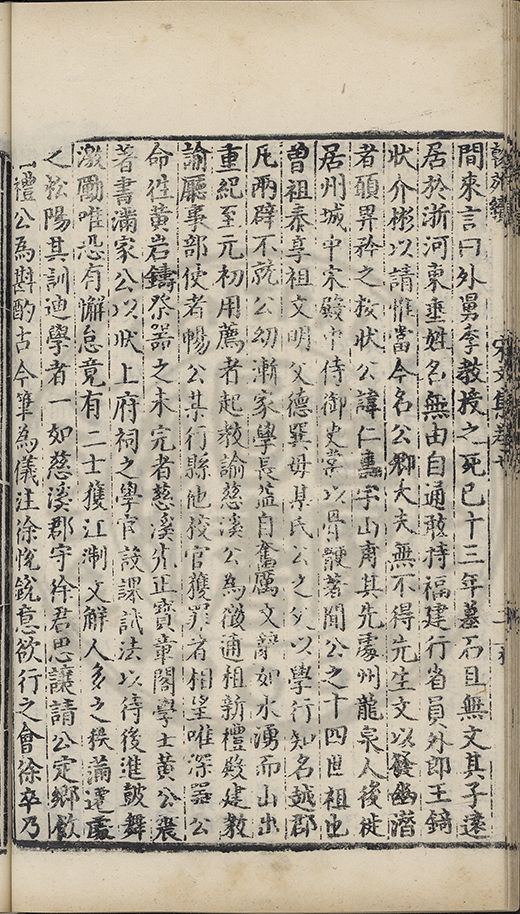 間來言曰外舅季教授之死已十三年墓石且無文其子遠
居於浙河東垂姓名無由自通敢持福建行省員外郎王鎬
狀介彬以請惟當今名公卿大夫無不得先生文以發幽潛
者願畀矜之按狀公諱仁壽字山甫其先處州龍泉人後徙
居州城中宋殿中侍御史常以骨鯁著聞公之十四世祖也
曾祖泰亨祖文明父德巽毋某氏公之父以學行知名越郡
凡兩辟不就公幼漸家學長益自奮厲文辭如水湧而山出
重紀至元初用薦者起教諭慈溪公為徵逋租新禮殿建教
諭廳事部使者暢公某行縣他校官獲罪者相望唯深器公
命往黃岩鑄祭器之未完者慈溪先正寶章閣學士黃公震
著書滿家公以狀上府祠之學官設課試法以待後進鼓舞
激勵唯恐有懈怠竟有二士獲江淛文解人多之秩滿遷處
之松陽其訓迪學者一如慈溪郡守徐君思讓請公定鄉飲
禮公為斟酌古今筆為儀注徐悅銳意欲行之會徐卒乃
宋文集卷